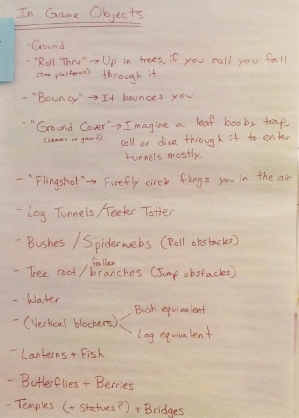 In Game Objects
- Ground
- "Roll Thru" → Up in trees, if you roll you fall
(tree platforms) through it
- "Bouncy" → It bounces you
- "Ground Cover" → Imagine a leaf booby trap
roll or dive through it to enter
tunnels mostly.
- "Flingshot" → Firefly circle flings you in the air
- Log Tunnels/Teeter Totter
- Bushes / Spiderwebs (Roll obstacles)
- Tree root / fallen branches (Jump obstacles)
- Water
- (Vertical blockers) Bush equivalent
Log equivalent
- Lanterns + Fish
- Butterflies + Berries
- Temples (+ Statues?) + Bridges